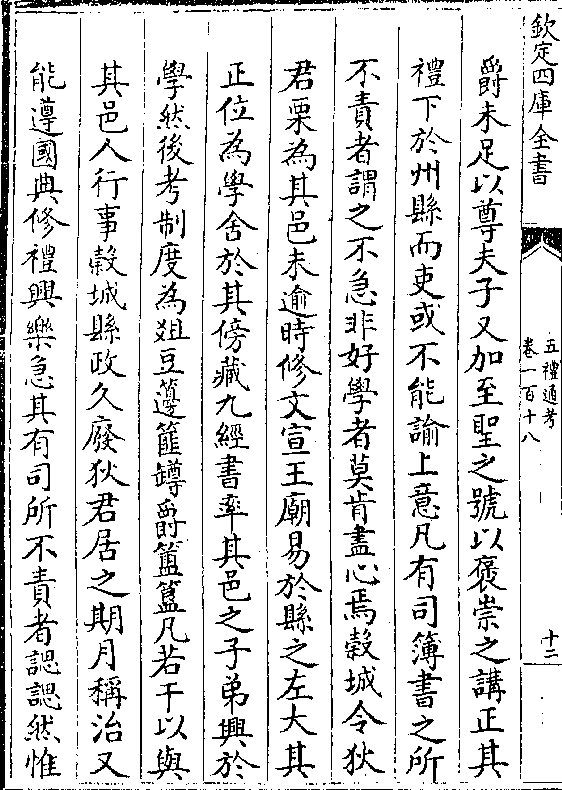 欽定四庫全書
五禮通考
卷一百十八
十二
爵未足以尊夫子又加至聖之號以褒崇之講正其
禮下於州縣而吏或不能諭上意凡有司簿書之所
不責者謂之不急非好學者莫肯盡心焉榖城令狄
君栗為其邑未逾時修文宣王廟易於縣之左大其
正位為學舍於其傍藏九經書率其邑之子弟興於
學然後考制度為俎豆籩篚罇爵簠簋凡若干以與
其邑人行事榖城縣政久廢狄君居之期月稱治又
能遵國典修禮興樂急其有司所不責者諰諰然惟